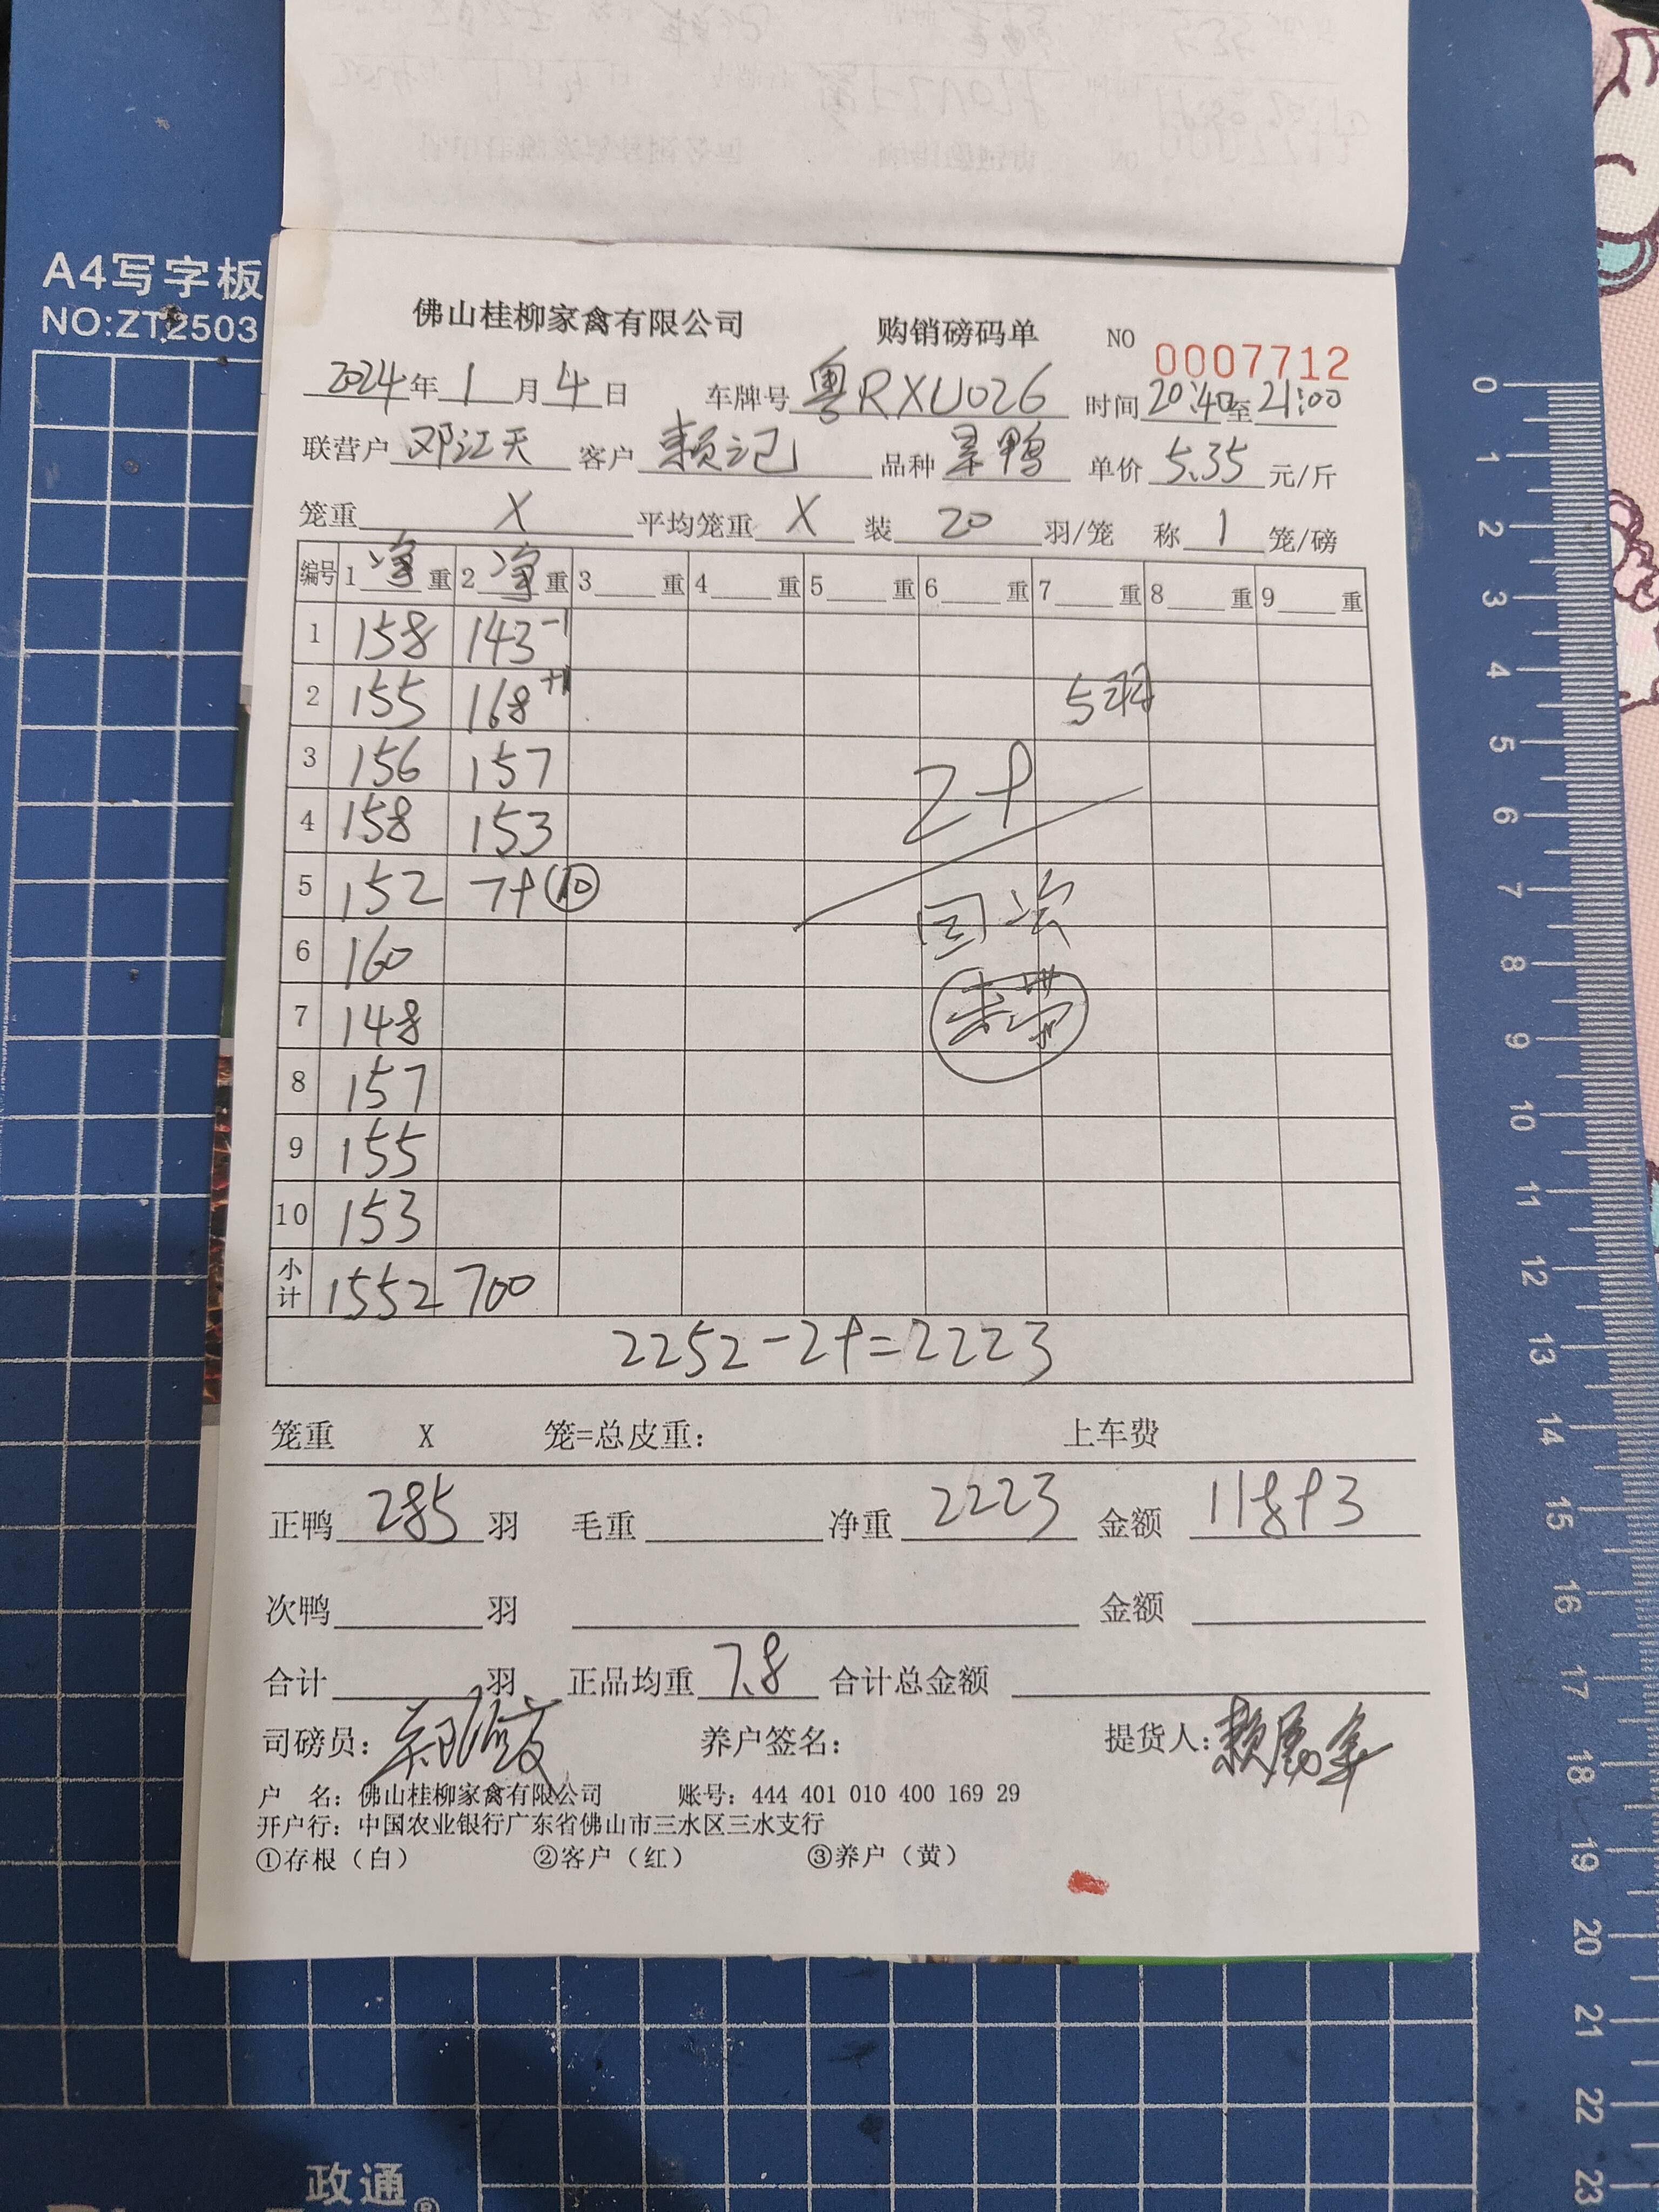 A4写字板
NO:ZT2503
佛山桂柳家禽有限公司 购销磅码单 NO 0007712
2024年1月4日 车牌号 粤RXU026 时间 20:40至21:00
联营户 邓江天 客户 赖记 品种 旱鸭 单价 5.35 元/斤
笼重 X 平均笼重 X 装 20 羽/笼 称 1 笼/磅
编号 1 净 重 2 净 重 3 重 4 重 5 重 6 重 7 重 8 重 9 重
1 158 143-1
2 155 168+1 5羽
3 156 157 29
4 158 153
5 152 79 10
6 160
7 148
8 157
9 155
10 153
小计 1552 700
2252-29=2223
笼重 X 笼=总皮重: 上车费
正鸭 285 羽 毛重 净重 2223 金额 11893
次鸭 羽 金额
合计 羽 正品均重 7.8 合计总金额
司磅员: 养户签名: 提货人:
户 名: 佛山桂柳家禽有限公司 账号: 444 401 010 400 169 29
开户行: 中国农业银行广东省佛山市三水区三水支行
①存根（白） ②客户（红） ③养户（黄）
0
1
2
3
4
5
6
7
8
9
10
11
12
13
14
15
16
17
18
19
20
21
22
23
政通®